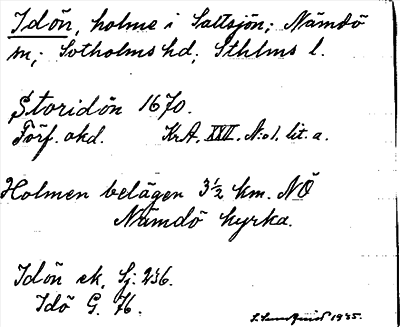 Idön, holme i Saltsjön; Nämdö
sn; Sotholms hd, Sthlms l.
Storidön 1670.
Förf. okd. KrA. XXII. No 1. lit. a.
Holmen belägen 3½ km. NÖ
Nämdö kyrka.
Idön ek. Sj: 236.
Idö G. 76.
1935.